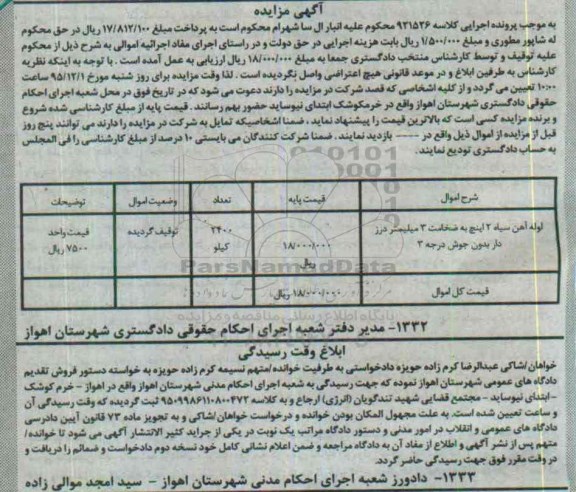 آگهی مزایده
به موجب پرونده اجرایی کلاسه ۹۲۱۵۲۶ محکوم علیه انبار ال سا شهرام محکوم است به پرداخت مبلغ ۱۷/۸۱۲/۱۰۰ ریال در حق محکوم
له شاپور مطوری و مبلغ ۱/۵۰۰/۰۰۰ ریال بابت هزینه اجرایی در حق دولت و در راستای اجرای مفاد اجرائیه اموالی به شرح ذیل از محکوم
علیه توقیف و توسط کارشناس منتخب دادگستری جمعا به مبلغ ۱۸/۰۰۰/۰۰۰ ریال ارزیابی به عمل آمده است . با توجه به اینکه نظریه
کارشناس به طرفین ابلاغ و در موعد قانونی هیچ اعتراضی واصل نگردیده است . لذا وقت مزایده برای روز شنبه مورخ ۹۵/۱۲/۱ ساعت
۱۰:۰۰ تعیین می گردد و از کلیه اشخاصی که قصد شرکت در مزایده را دارند دعوت می شود که در تاریخ فوق در محل شعبه اجرای احکام
حقوقی دادگستری شهرستان اهواز واقع در خرمکوشک ابتدای نیوساید حضور بهم رسانند . قیمت پایه از مبلغ کارشناسی شده شروع
و برنده مزایده کسی است که بالاترین قیمت را پیشنهاد نماید ، ضمنا اشخاصیکه تمایل به شرکت در مزایده را دارند می توانند پنج روز
قبل از مزایده از اموال ذیل واقع در ----- بازدید نمایند . ضمنا شرکت کنندگان می بایستی ۱۰ درصد از مبلغ کارشناسی را فی المجلس
به حساب دادگستری تودیع نمایند.
شرح اموال قیمت پایه تعداد وضعیت اموال توضیحات
لوله آهن سیاه ۲ اینچ به ضخامت ۳ میلیمتر درز دار بدون جوش درجه ۳ ۱۸/۰۰۰/۰۰۰ ریال ۲۴۰۰ کیلو توقیف گردیده قیمت واحد ۷۵۰۰ ریال
قیمت کل اموال ۱۸/۰۰۰/۰۰۰ ریال
ParsNamadData
پایگاه اطلاع رسانی مناقصه و مزایده
۱۳۳۲- مدیر دفتر شعبه اجرای احکام حقوقی دادگستری شهرستان اهواز
ابلاغ وقت رسیدگی
خواهان/شاکی عبدالرضا کرم زاده حویزه دادخواستی به طرفیت خوانده/متهم نسیمه کرم زاده حویزه به خواسته دستور فروش تقدیم
دادگاه های عمومی شهرستان اهواز نموده که جهت رسیدگی به شعبه اجرای احکام مدنی شهرستان اهواز واقع در اهواز - خرم کوشک
-ابتدای نیوساید - مجتمع قضایی شهید تندگویان (انرژی) ارجاع و به کلاسه ۹۵۰۹۹۸۶۱۱۰۸۰۰۴۷۳ ثبت گردیده که وقت رسیدگی آن
و ساعت تعیین شده است. به علت مجهول المکان بودن خوانده و درخواست خواهان/شاکی و به تجویز ماده ۷۳ قانون آیین دادرسی
دادگاه های عمومی و انقلاب در امور مدنی و دستور دادگاه مراتب یک نوبت در یکی از جراید کثیر الانتشار آگهی می شود تا خوانده/
متهم پس از نشر آگهی و اطلاع از مفاد آن به دادگاه مراجعه و ضمن اعلام نشانی کامل خود نسخه دوم دادخواست و ضمائم را دریافت و
در وقت مقرر فوق جهت رسیدگی حاضر گردد.
۱۳۳۳- دادورز شعبه اجرای احکام مدنی شهرستان اهواز - سید امجد موالی زاده